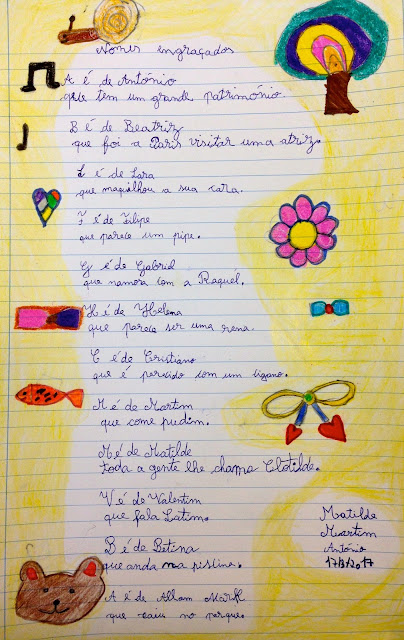 Nomes engraçados
A é de António
que tem um grande património.
B é de Beatriz
que foi a Paris visitar uma atriz.
L é de Lara
que maquilhou a sua cara.
F é de Filipe
que parece um pipe.
G é de Gabriel
que namora com a Raquel.
H é de Helena
que parece ser uma rena.
C é de Cristiano
que é parecido com um
M é de Martim
que come pudim.
M é de Matilde
toda a gente lhe chama Clotilde.
V é de Valentim
que fala Latim.
B é de Betina
que anda na piscina.
A é de Allam Mark
que caiu no parque.
Matilde
Martim
António
17/3/2017